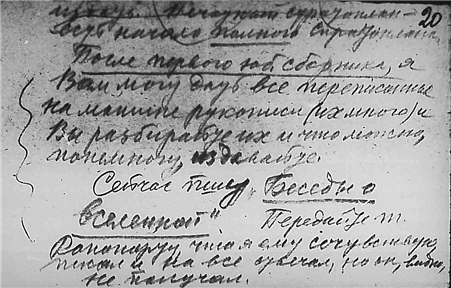 20
начало полного
После первого юб. сборника, я
Вам могу дать все переписанные
на машине рукописи (их много) и
Вы разбирайте их и что можно,
понемногу, издавайте.
Сейчас пишу „Беседы о
вселенной“ Передайте т.
Рапопорту, что я ему сочувствую,
писал и на все отвечал, но он, видно,
не получал.